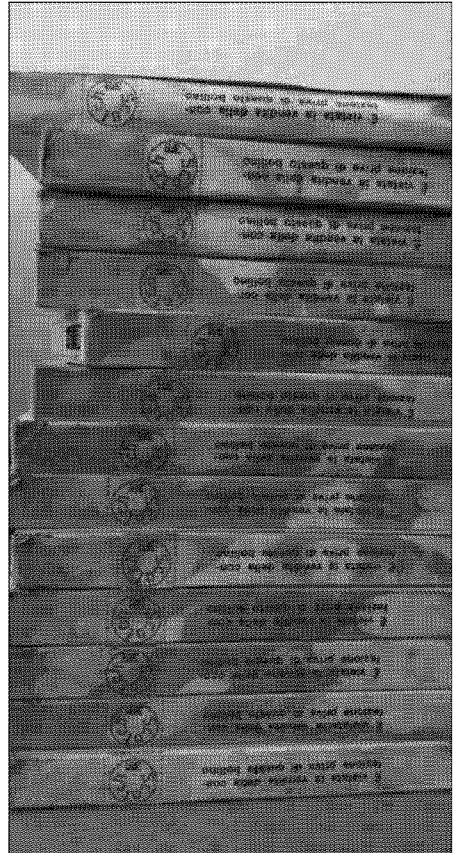 È vietata la vendita della con-
fezione priva di questo bollino
È vietata la vendita della con-
fezione priva di questo bollino
È vietata la vendita della con-
fezione priva di questo bollino
È vietata la vendita della con-
fezione priva di questo bollino
È vietata la vendita della con-
fezione priva di questo bollino
È vietata la vendita della con-
fezione priva di questo bollino
È vietata la vendita della con-
fezione priva di questo bollino
È vietata la vendita della con-
fezione priva di questo bollino
È vietata la vendita della con-
fezione priva di questo bollino
È vietata la vendita della con-
fezione priva di questo bollino
È vietata la vendita della con-
fezione priva di questo bollino
È vietata la vendita della con-
fezione priva di questo bollino
È vietata la vendita della con-
fezione priva di questo bollino